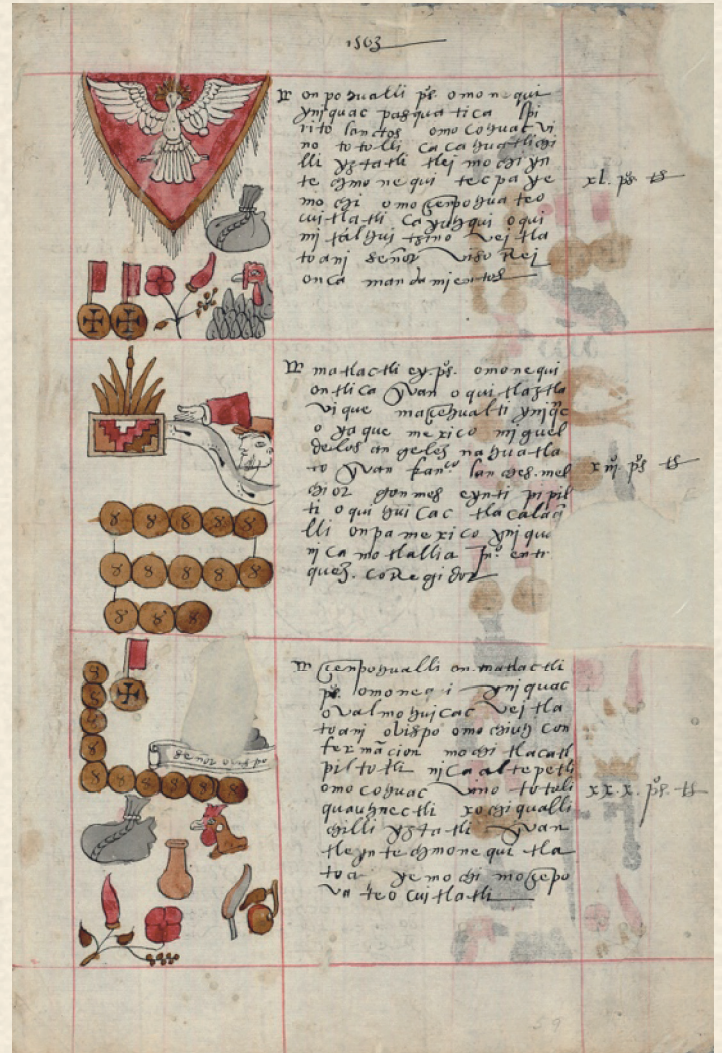 1563
onpohualli p͠s. omonequi
yniquac pasquatica spi
rito sanctos omocohuac vi
no totolli cacahuatl chi
lli yztatl tlei mochi yn
techmonequi tecpa ye
mochi omoçenpohua teo
cuitlatl ca yuhqui oqui
mitalhui tzino vei tla
toani señor viso Rei
onca mandamientos
xl. p͠s ts
matlactli ey. p͠s. omonequi
ontlica yvan oquitlaztla
vique maçehualti yniqc
o yaque mexico miguel
delos angeles nahuatla
to yvan fran.co sanches. mel
chior gomes eynti pipil
ti oquihuicac tlacalaqi
lli onpa mexico yniqu
nica motlallia Ju.o enrr
quez. coRegidor
xiii p͠s ts
8 8 8 8 8
8 8 8 8 8
8 8 8
çenpohualli on matlactli
p͠s. omoneq i yniquac
ovalmohuicac vei tla
toani obispo omochiuh con
fermacion mochi tlacatl
piltotli nica altepetl
omocohuac vino totoli
quauhnectli xochiqualli
chilli yztatli yvan
tleyn techmonequi tla
toa yemochi moçepo
va teocuitlatli
xx.x. p͠s ts
señor obispo
59